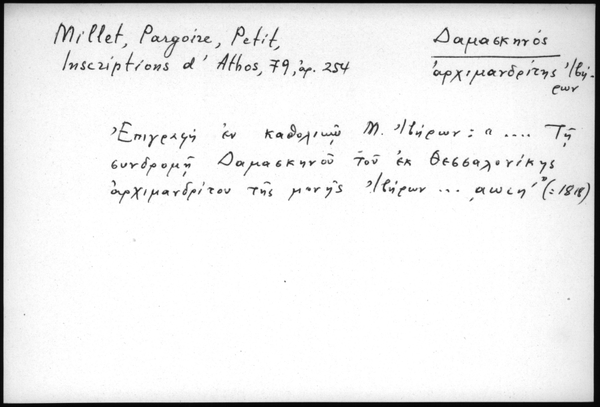 Millet, Pargoire, Petit,
Inscriptions d' Athos, 79, ἀρ. 254
Δαμασκηνός
ἀρχιμανδρίτης Ἰβή-
ρων
Ἐπιγραφή ἐν καθολικῷ Μ. Ἰβήρων: " .... Τῇ
συνδρομῇ Δαμασκηνοῦ τοῦ ἐκ Θεσσαλονίκης
ἀρχιμανδρίτου τῆς μονῆς Ἰβήρων ... ͵αωιη´" (=1818)